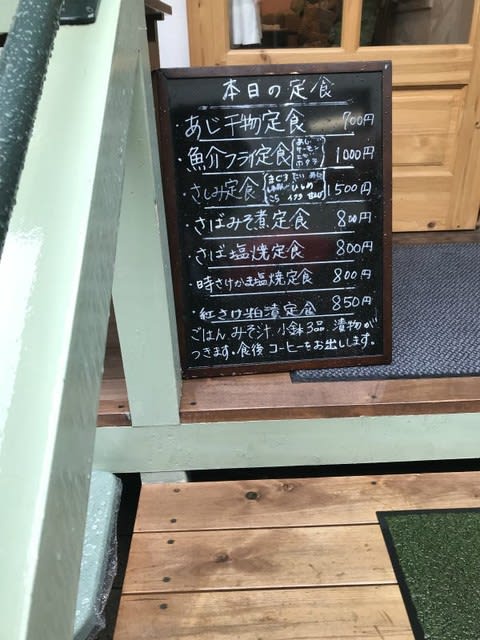 本日の定食
・あじ干物定食 700円
・魚介フライ定食 あじ サーモン ホタテ 1000円
・さしみ定食 まぐろ たい ひらめ イクラ 1500円
・さばみそ煮定食 800円
・さば塩焼定食 800円
・時さけかま塩焼定食 800円
・紅さけ粕漬定食 850円
ごはん みそ汁 小鉢3品 漬物が
つきます。食後 コーヒーをお出しします。